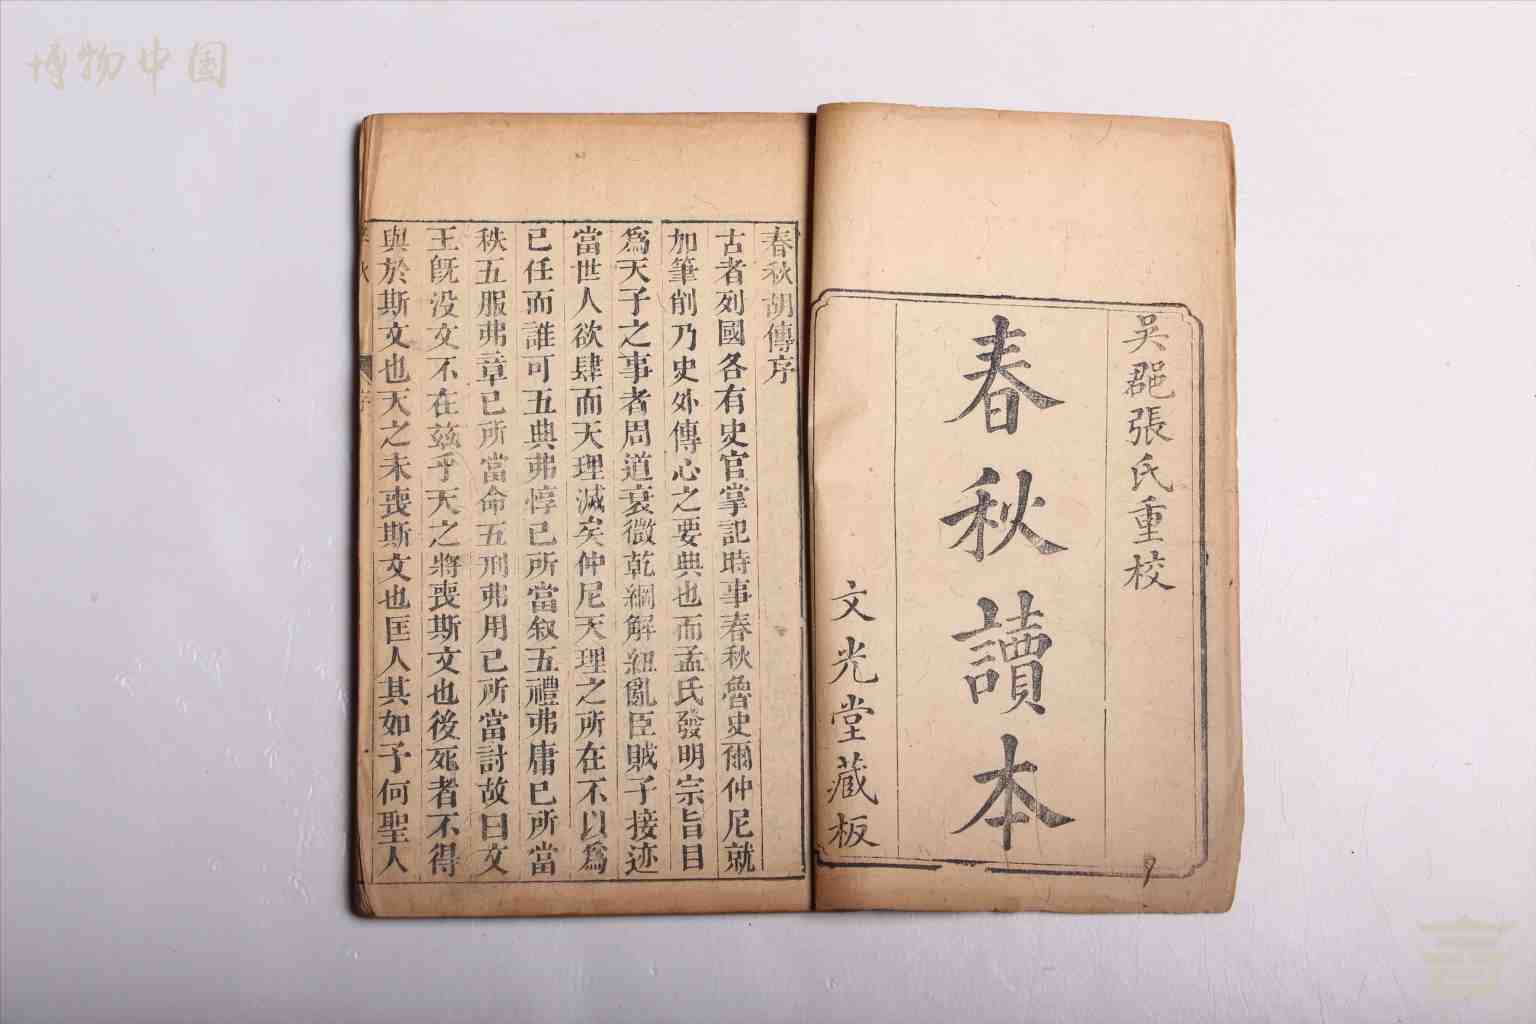 博物中国
吳郡張氏重校
春秋讀本
文光堂藏板
春秋胡傳序
古者列國各有史官掌記時事春秋魯史爾仲尼就
加筆削乃史外傳心之要典也而孟氏發明宗旨目
爲天子之事者周道衰微乾綱解紐亂臣賊子接迹
當世人欲肆而天理滅矣仲尼天理之所在不以爲
已任而誰可五典弗惇已所當叙五禮弗庸已所當
秩五服弗章已所當命五刑弗用已所當討故曰文
王旣没文不在茲乎天之將喪斯文也後死者不得
與於斯文也天之未喪斯文也匡人其如予何聖人